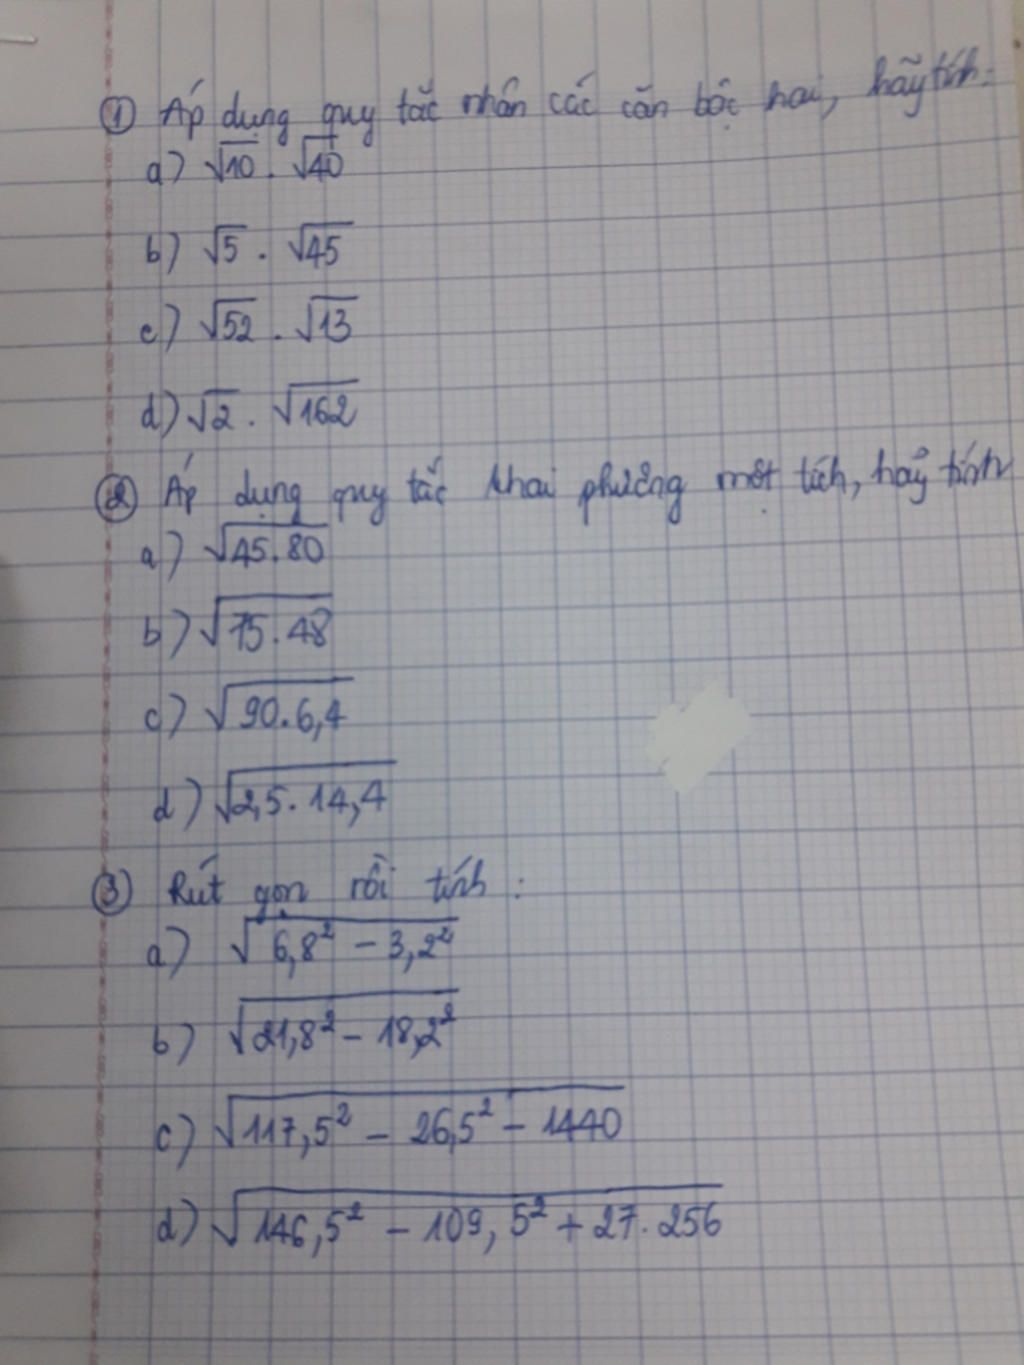 ① Áp dụng quy tắc nhân các căn bậc hai, hãy tính:
a) √10 . √40
b) √5 . √45
c) √52 . √13
d) √2 . √162
② Áp dụng quy tắc khai phương một tích, hãy tính
a) √45.80
b) √75.48
c) √90.6,4
d) √2,5.14,4
③ Rút gọn rồi tính :
a) √6,8² - 3,2²
b) √21,8² - 18,2²
c) √117,5² - 26,5² - 1440
d) √146,5² - 109,5² + 27.256